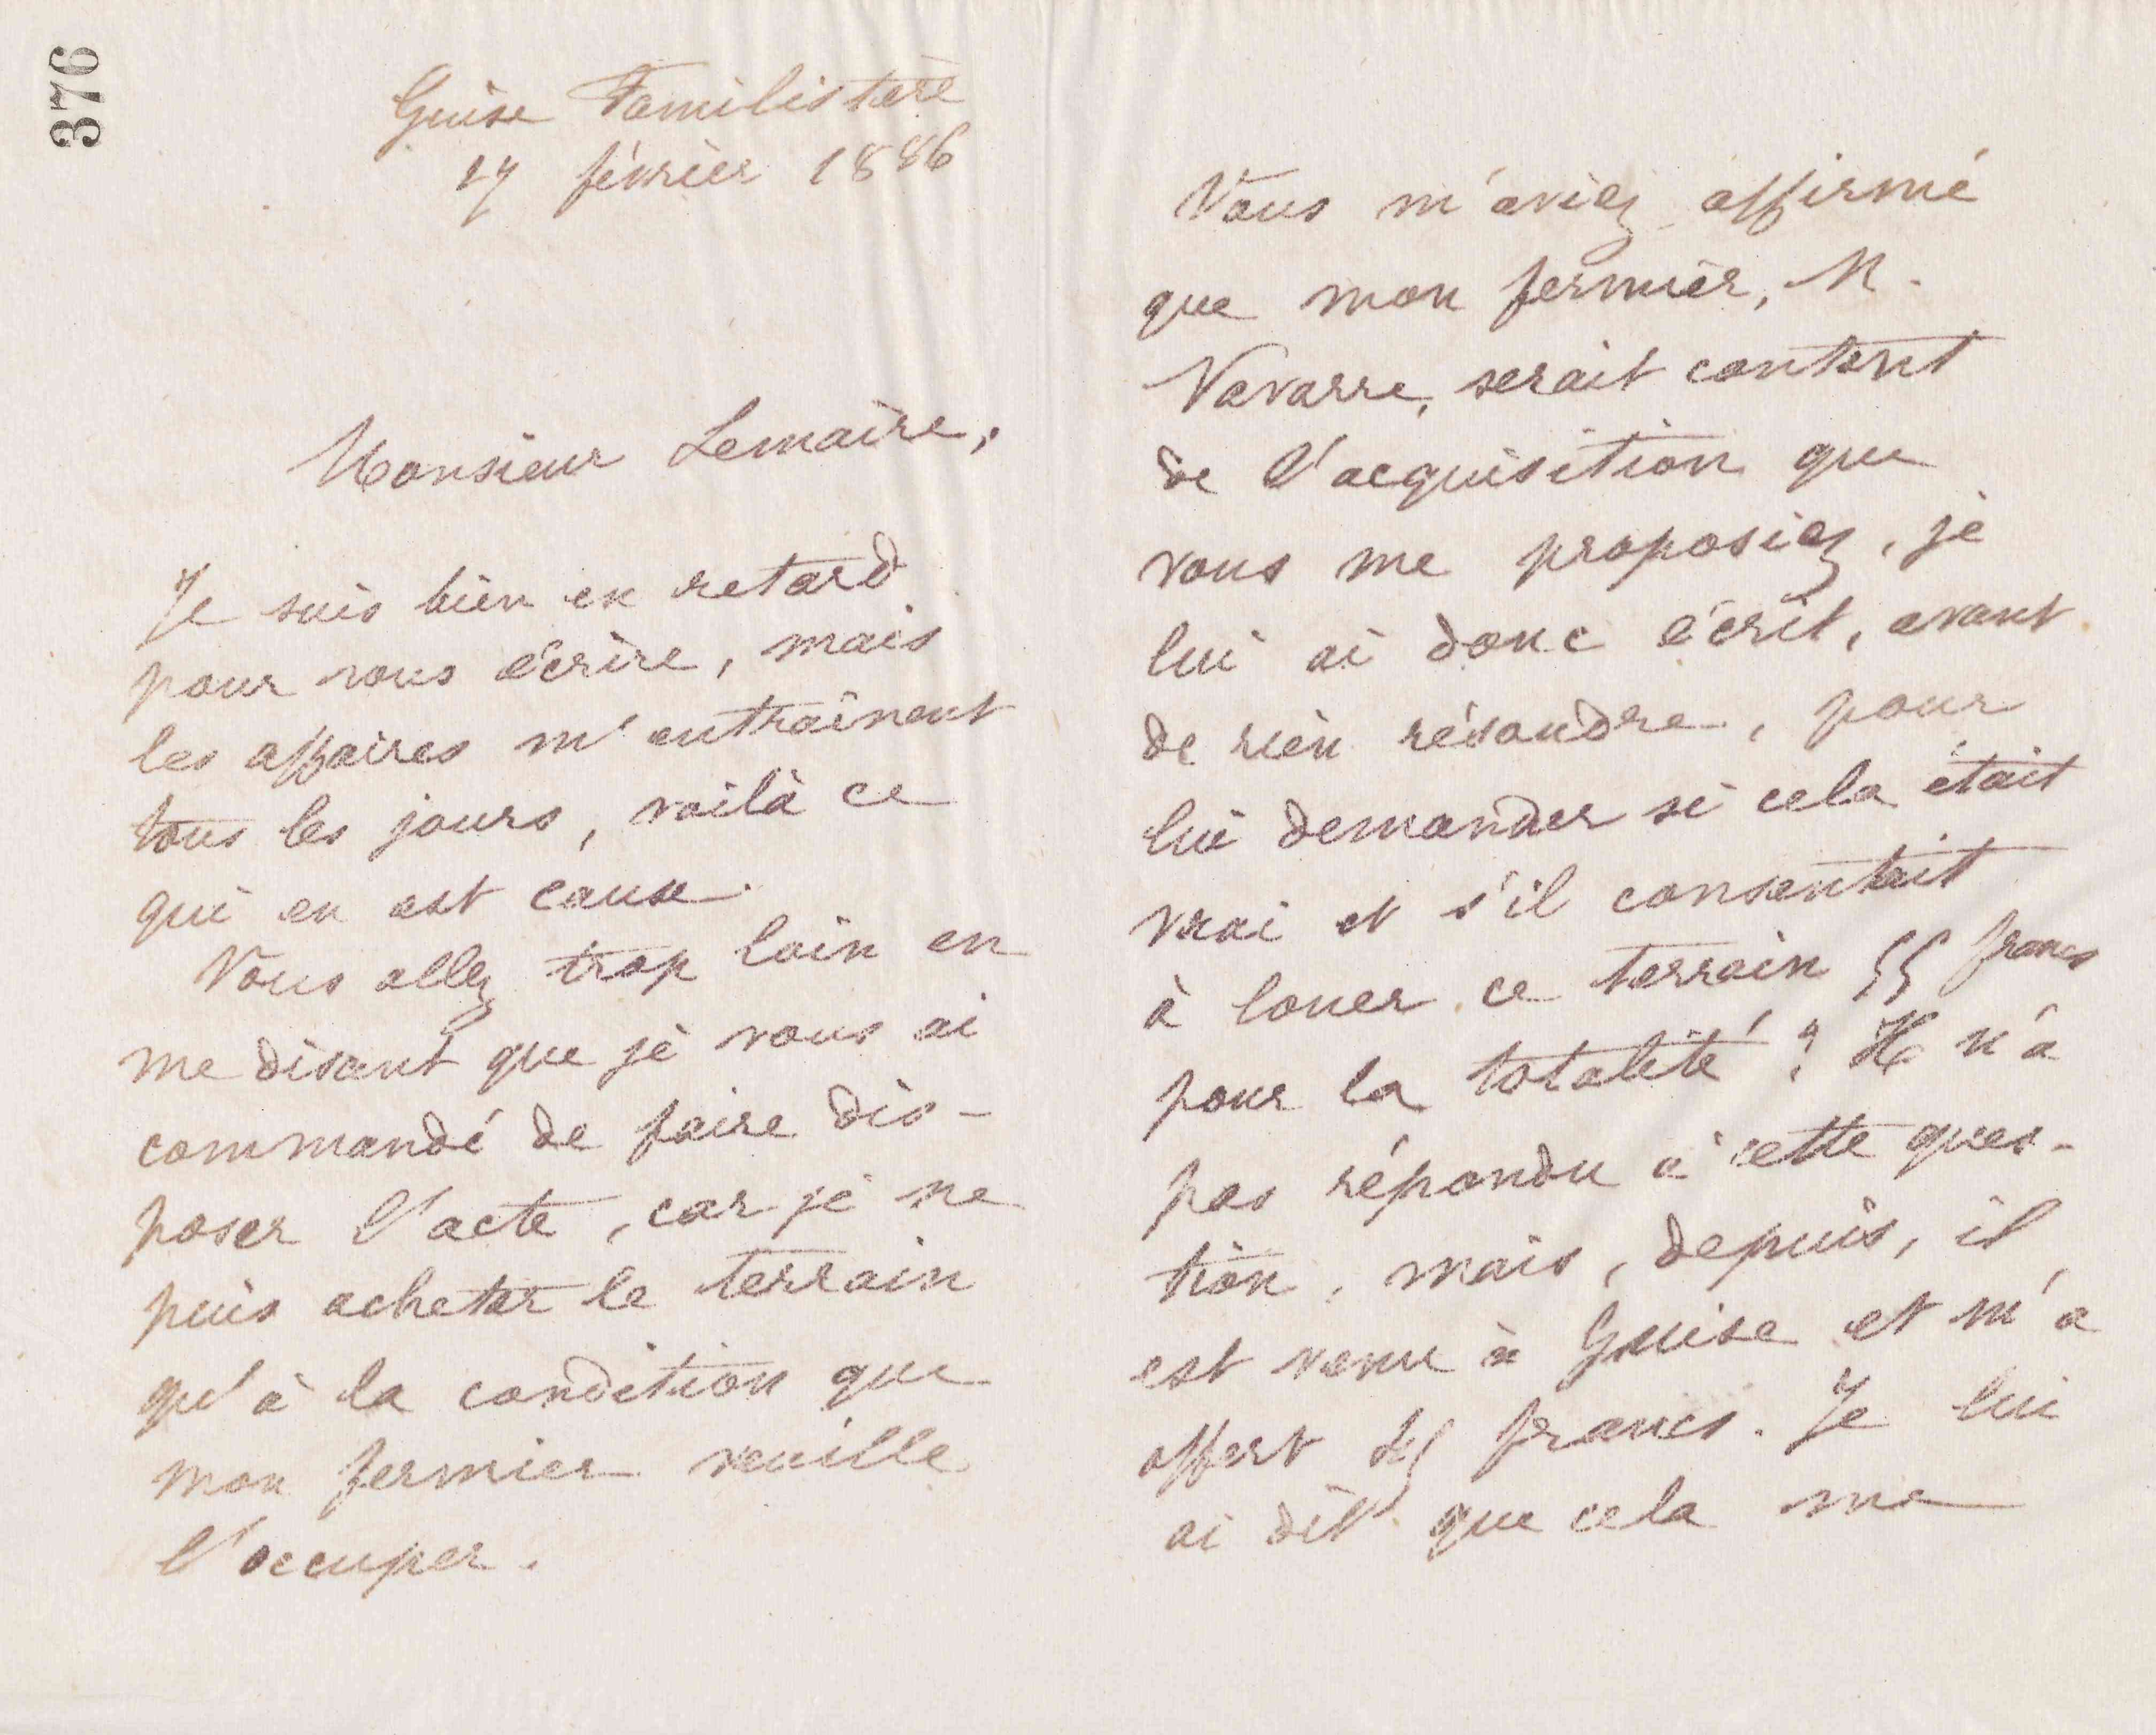 376
Guise Familistère
27 février 1886
Monsieur Lemaire,
Je suis bien en retard
pour vous écrire, mais
les affaires m'entraînent
tous les jours, voilà ce
qui en est cause.
Vous allez trop loin en
me disant que je vous ai
commandé de faire dis-
poser l'acte, car je ne
puis acheter le terrain
qu'à la condition que
mon fermier veuille
l'occuper.
Vous m'aviez affirmé
que mon fermier, M.
Navarre, serait content
de l'acquisition que
vous me proposiez, je
lui ai donc écrit, avant
de rien résoudre, pour
lui demander si cela était
vrai et s'il consentait
à louer ce terrain 55 francs
pour la totalité? Il n'a
pas répondu à cette ques-
tion, mais, depuis, il
est venu à Guise et m'a
offert francs. Je lui
ai dit que cela me